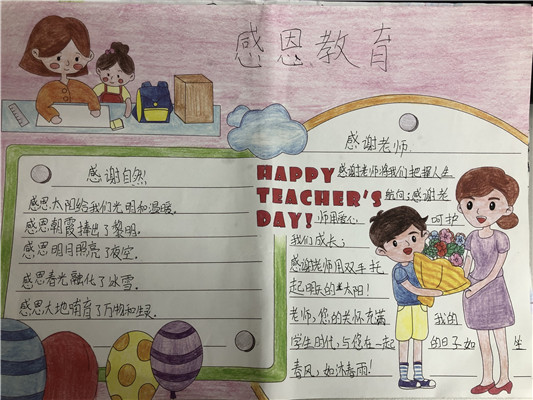 感恩教育
感谢自然
感恩太阳给我们光明和温暖。
感恩朝霞捧出了黎明。
感恩明月照亮了夜空。
感恩春光融化了冰雪。
感恩大地哺育了万物和生灵。
HAPPY
TEACHER'S
DAY!
感谢老师
感谢老师将我们把握人生
航向;感谢老
师用爱心 呵护
我们成长;
感谢老师用双手托
起明天的太阳!
老师,您的关怀充满 我的
学生时代,与您在一起 的日子如 坐
春风,如沐春雨!